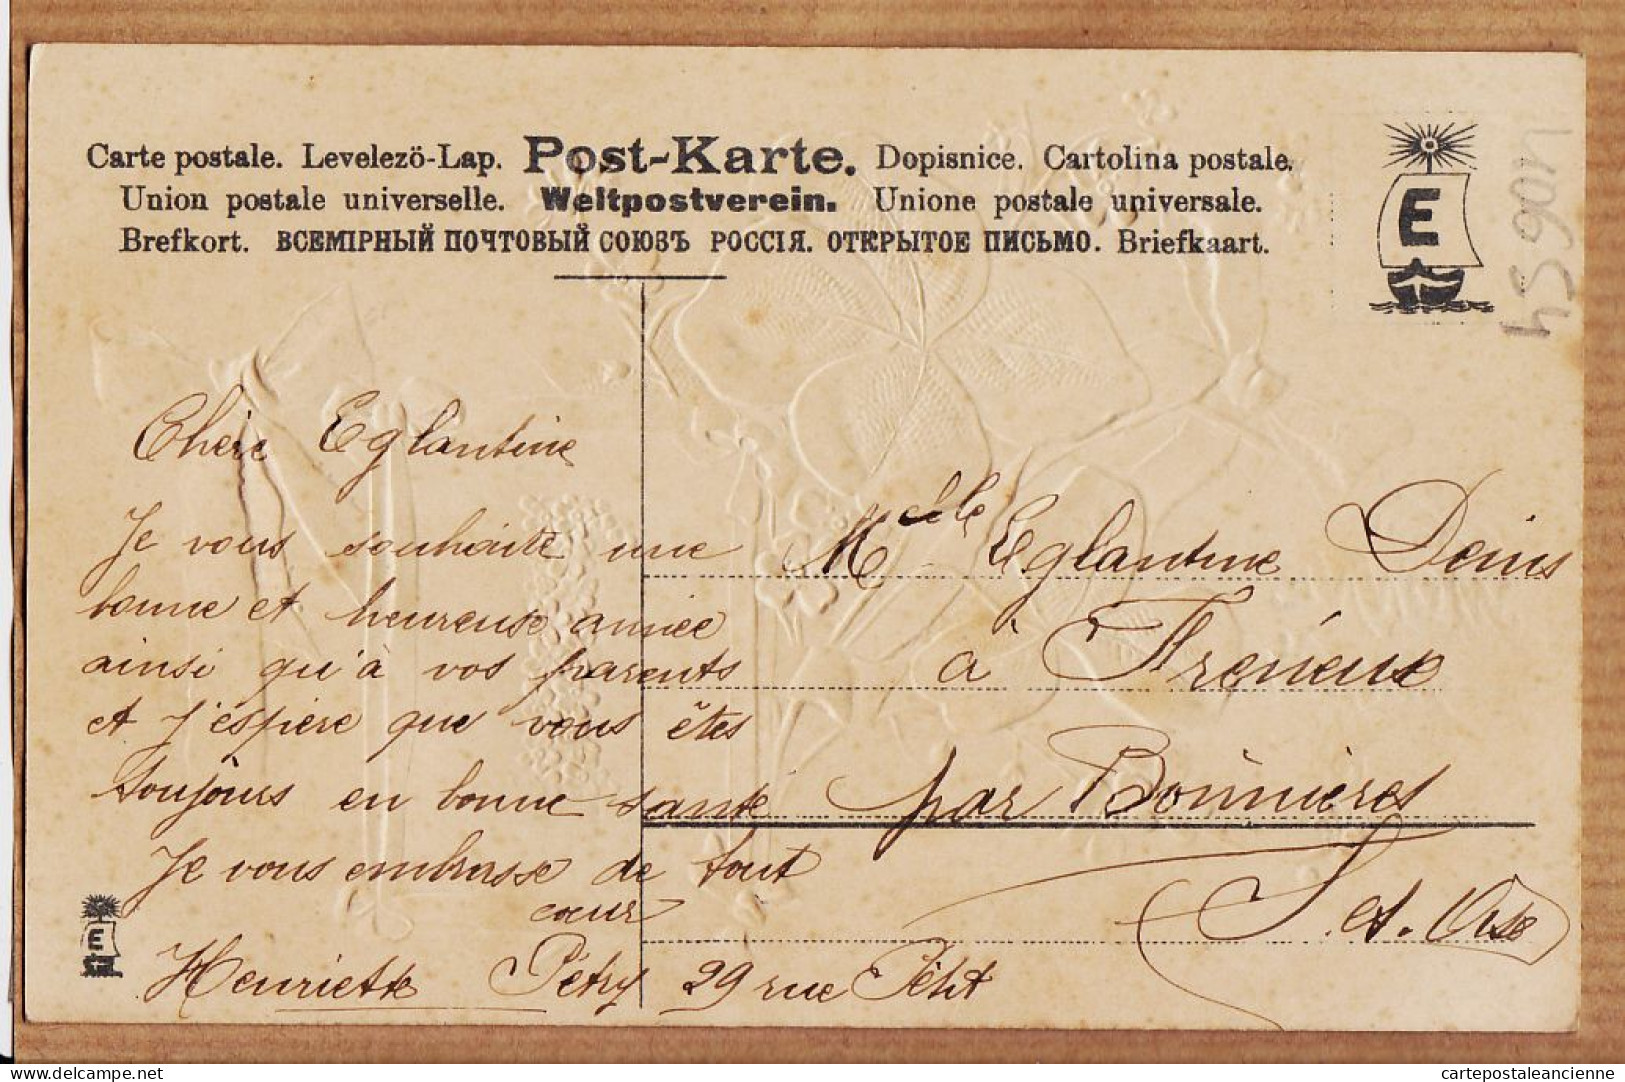 Carte postale. Levelezö-Lap. Post-Karte. Dopisnice. Cartolina postale.
Union postale universelle. Weltpostverein. Unione postale universale.
Brefkort. ВСЕМІРНЫЙ ПОЧТОВЫЙ СОЮЗЪ РОССІЯ. ОТКРЫТОЕ ПИСЬМО. Briefkaart.
E
Chère Eglantine
Je vous souhaite une
bonne et heureuse année
ainsi qu'à vos parents
et j'espère que vous êtes
toujours en bonne santé
Je vous embrasse de tout
cœur
Henriette Pétry 29 rue Petit
Melle Eglantine Denis
à Freneuse
par Bonnières
S. et. Oise
E
delcampe.net
cartepostaleancienne